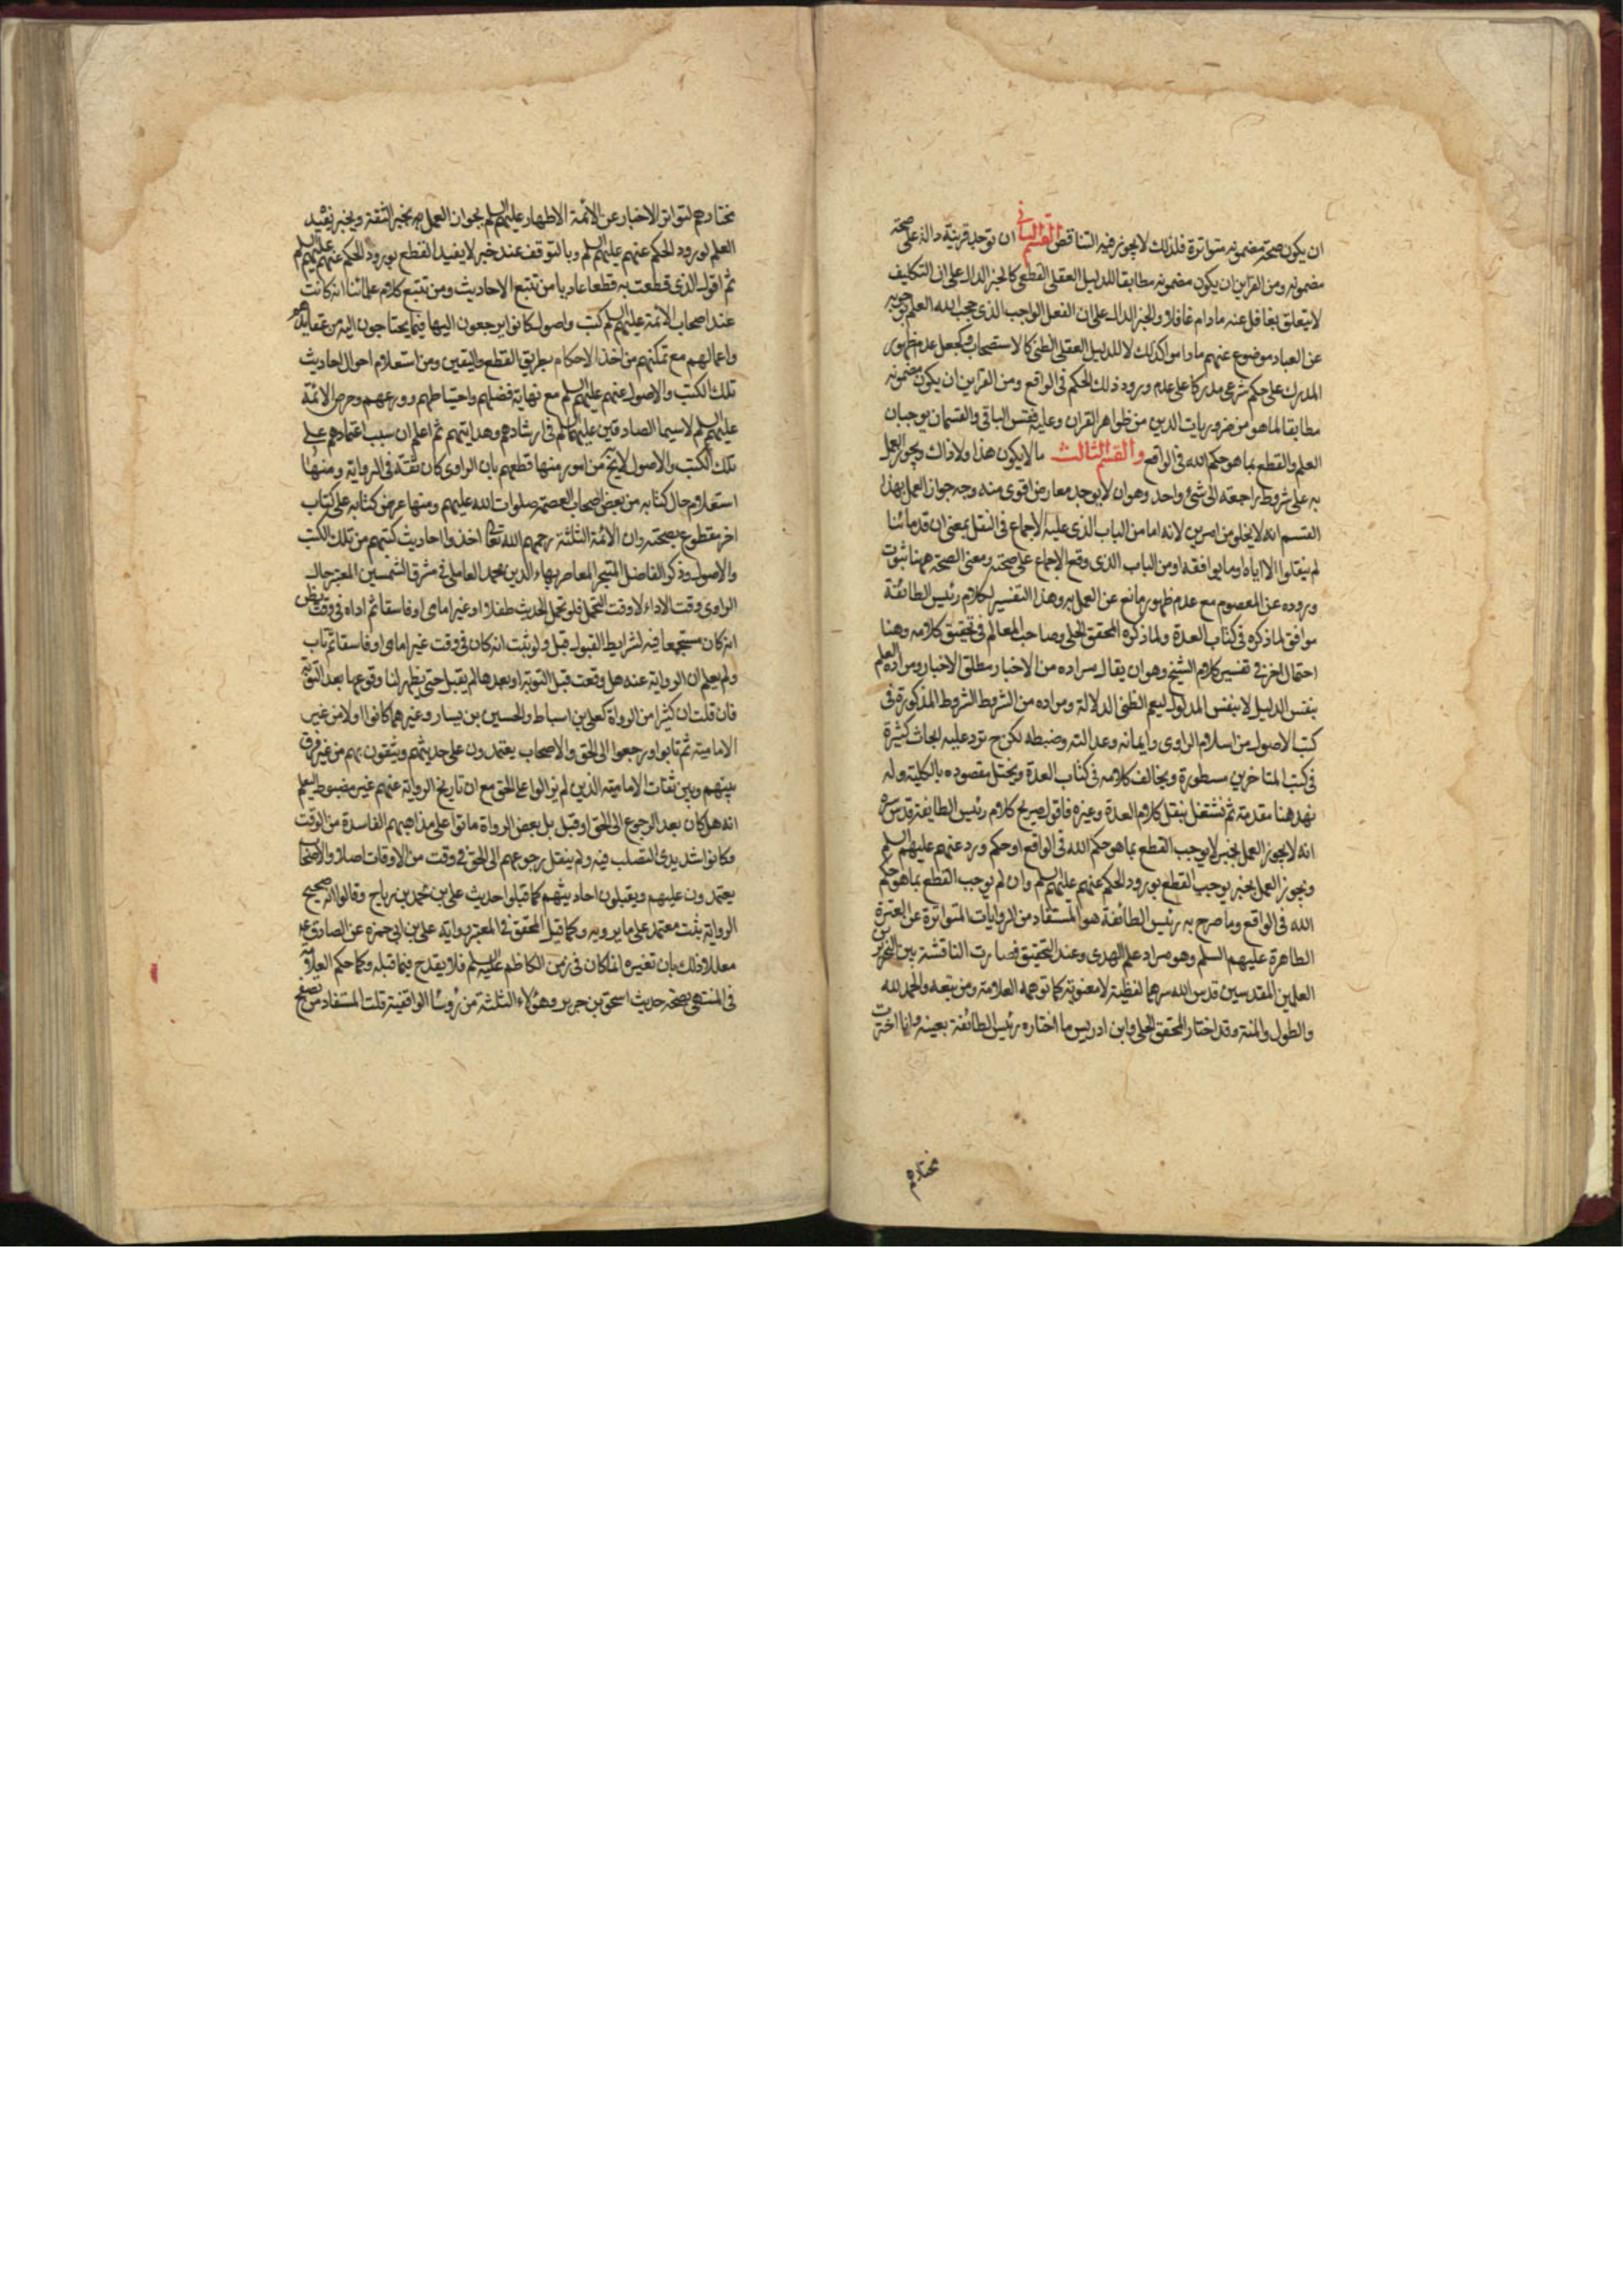 ان يكون صحة مضمونه متواترة فلذلك لا يجوز فيه التناقض القسم الثاني ان توجد قرينة دالة على صحة
مضمونه ومن القراين ان يكون مضمونه مطابقا للدليل العقلي القطعي كالخبر الدال على ان التكليف
لا يتعلق بغافل عنه ما دام غافلا والخبر الدال على ان الفعل الواجب الذي حجب الله العلم بوجوبه
عن العباد موضوع عنهم ما داموا كذلك لا للدليل العقلي الظني كالاستصحاب وكجعل عدم ظهور
المدرك على حكم شرعي مدركا على عدم ورود ذلك الحكم في الواقع ومن القراين ان يكون مضمونه
مطابقا لما هو من ضروريات الدين من ظواهر القران وعليه فقس الباقي والقسمان يوجبان
العلم والقطع بما هو حكم الله في الواقع والقسم الثالث ما لا يكون هذا ولا ذاك ويجوز العمل
به على شروط راجعة الى شئ واحد وهو ان لا يوجد معارض اقوى منه وجه جواز العمل بهذا
القسم انه لا يخلو من امرين لانه اما من الباب الذي عليه الاجماع في النقل بمعنى ان قدمائنا
لم ينقلوا الا اياه او ما يوافقه او من الباب الذي وقع الاجماع على صحته ومعنى الصحة ههنا ثبوت
وروده عن المعصوم مع عدم ظهور مانع عن العمل به وهذا التفسير لكلام رئيس الطائفة
موافق لما ذكره في كتاب العدة ولما ذكره المحقق الحلي وصاحب المعالم في تحقيق كلامه وهنا
احتمال اخر في تفسير كلام الشيخ وهو ان يقال مراده من الاخبار مطلق الاخبار ومراده العلم
بنفس الدليل لا بنفس المدلول ليعم الظني الدلالة ومراده من الشروط الشروط المذكورة في
كتب الاصول من اسلام الراوي وايمانه وعدالته وضبطه لكن ح ترد عليه ابحاث كثيرة
في كتب المتاخرين مسطورة ويخالف كلامه في كتاب العدة ويختل مقصوده بالكلية ولـ
نمهد هنا مقدمة ثم نشتغل بنقل كلام العدة وغيره فاقول صريح كلام رئيس الطايفة قدس سره
انه لا يجوز العمل بخبر لا يوجب القطع بما هو حكم الله في الواقع او حكم ورد عنهم عليهم السلم
ونجوز العمل بخبر يوجب القطع بورود الحكم عنهم عليهم السلم وان لم يوجب القطع بما هو حكم
الله في الواقع وما صرح به رئيس الطائفة هو المستفاد من الروايات المتواترة عن العترة
الطاهرة عليهم السلم وهو مراد علم الهدى وعند التحقيق فصارت المناقشة بين النحريرين
العلمين المقدسين قدس الله سرهما لفظية لا معنوية كما توهمه العلامة ومن تبعه والحمد لله
والطول والمنة وقد اختار المحقق الحلي وابن ادريس ما اختاره رئيس الطائفة بعينه وانما اخترت
مختارهم
مختارهم لتواتر الاخبار عن الائمة الاطهار عليهم السلم بجواز العمل به بخبر الثقة وبخبر يفيد
العلم بورود الحكم عنهم عليهم السلم وبالتوقف عند خبر لا يفيد القطع بورود الحكم عنهم عليهم السلم
ثم اقول الذي قطعت به قطعا عاديا من تتبع الاحاديث ومن تتبع كلام علمائنا انه كانت
عند اصحاب الائمة عليهم السلم كتب واصول كانوا يرجعون اليها فيما يحتاجون اليه من عقايدهم
واعمالهم مع تمكنهم من اخذ الاحكام بطريق القطع واليقين ومن استعلام احوال احاديث
تلك الكتب والاصول عنهم عليهم السلم مع نهاية فضلهم واحتياطهم وورعهم وحرص الائمة
عليهم السلم لا سيما الصادقين عليهما السلم في ارشادهم وهدايتهم ثم اعلم ان سبب اعتمادهم على
تلك الكتب والاصول لا يخ من امور منها قطعهم بان الراوي كان ثقة في الرواية ومنها
استعلام حال كتابه من بعض اصحاب العصمة صلوات الله عليهم ومنها عرض كتابه على كتاب
اخر مقطوع بصحته وان الائمة الثلثة رحمهم الله تعالى اخذوا احاديث كتبهم من تلك الكتب
والاصول وذكر الفاضل المتبحر المعاصر بهاء الدين محمد العاملي في مشرق الشمسين المعتبر حال
الراوي وقت الاداء لا وقت التحمل فلو تحمل الحديث طفلا او غير امامي او فاسقا ثم اداه في وقت يظن
انه كان مستجمعا فيه لشرايط القبول قبل ولو ثبت انه كان في وقت غير امامي او فاسقا ثم تاب
ولم يعلم ان الرواية عنه هل وقعت قبل التوبة او بعدها لم يقبل حتى يظهر لنا وقوعها بعد التوبة
فان قلت ان كثيرا من الرواة كعلي بن اسباط والحسين بن يسار وغيرهما كانوا اولا من غير
الامامية ثم تابوا ورجعوا الى الحق والاصحاب يعتمدون على حديثهم ويثقون بهم من غير فرق
بينهم وبين ثقات الامامية الذين لم يزالوا على الحق مع ان تاريخ الرواية عنهم غير مضبوط ليعلم
انه هل كان بعد الرجوع الى الحق او قبل بل بعض الرواة ماتوا على مذاهبهم الفاسدة من الوقف
وكانوا شديدي التصلب فيه ولم ينقل رجوعهم الى الحق في وقت من الاوقات اصلا والاصحاب
يعتمدون عليهم ويقبلون احاديثهم كما قبلوا حديث علي بن محمد بن رباح وقالوا انه صحيح
الرواية ثبت معتمد على ما يرويه وكما قبل المحقق في المعتبر رواية علي بن ابي حمزه عن الصادق ع
معللا ذلك بان تغيره انما كان في زمن الكاظم عليه السلم فلا يقدح فيما قبله وكما حكم العلامة
في المنتهى بصحة حديث اسحق بن جرير وهؤلاء الثلثة من رؤسا الواقفية قلت المستفاد من تصفح